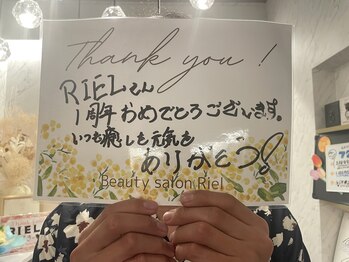 Thank you!
RIELさん
1周年おめでとうございます。
いつも癒しと元気を
ありがとう!
Beauty salon Riel
RIEL